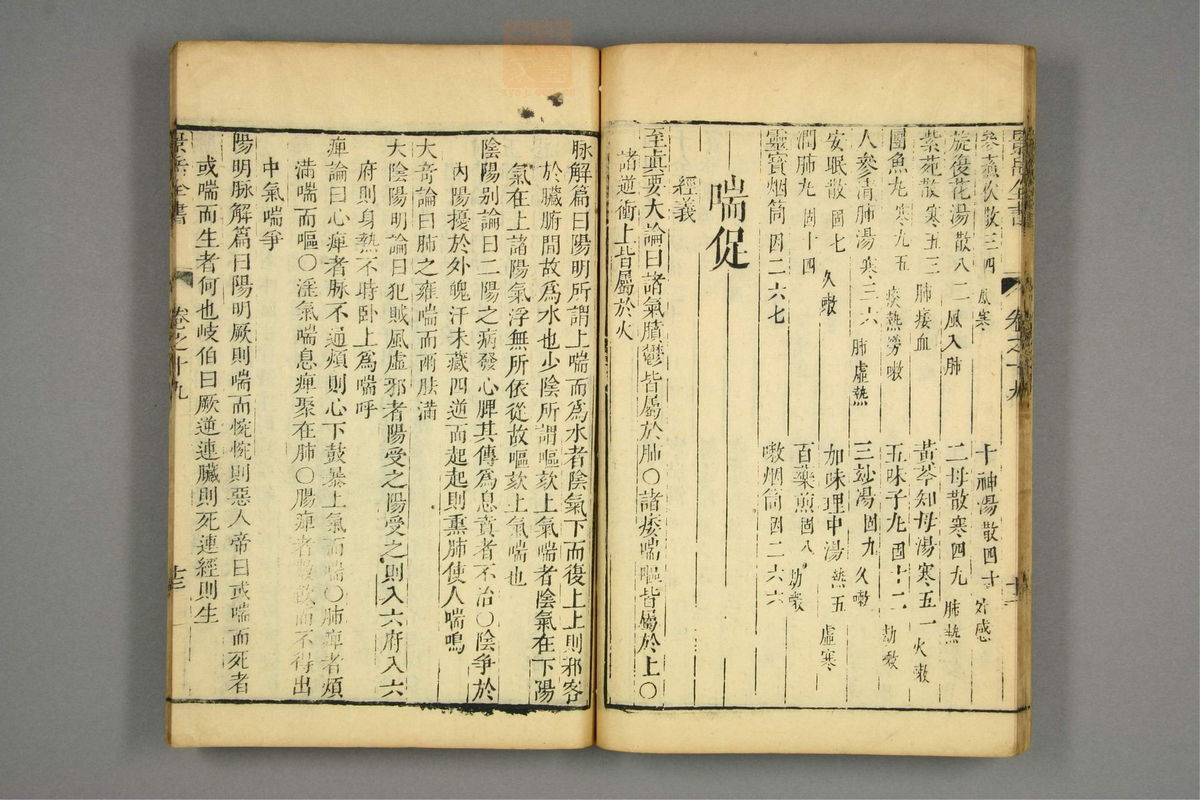 景岳全書 卷之十九
參蘇飲 散三四 風寒
十神湯 散四十 外感
旋復花湯 散八二 風入肺
二母散 寒四九 肺熱
紫苑散 寒五三 肺痿血
黃芩知母湯 寒五一 火嗽
團魚丸 寒九五 痰熱勞嗽
五味子丸 固十二 劫嗽
人參清肺湯 寒三六 肺虛熱
三妙湯 固九 久嗽
安眠散 固七 久嗽
加味理中湯 熱五 虛寒
潤肺丸 固十四
百藥煎 固八 劫嗽
靈寶烟筒 因二六七
嗽烟筒 因二六六
喘促
經義
至眞要大論曰諸氣膹鬱皆屬於肺○諸痿喘嘔皆屬於上○
諸逆衝上皆屬於火
脉解篇曰陽明所謂上喘而爲水者陰氣下而後上上則邪客
於臟腑間故爲水也少陰所謂嘔欬上氣喘者陰氣在下陽
氣在上諸陽氣浮無所依從故嘔欬上氣喘也
陰陽别論曰二陽之病發心脾其傳爲息賁者不治○陰爭於
內陽擾於外魄汗未藏四逆而起起則熏肺使人喘鳴
大奇論曰肺之雍喘而兩胠滿
太陰陽明論曰犯賊風虛邪者陽受之陽受之則入六府入六
府則身熱不時卧上爲喘呼
痺論曰心痺者脉不通煩則心下鼓暴上氣而喘○肺痺者煩
滿喘而嘔○淫氣喘息痺聚在肺○腸痺者數飲而不得出
中氣喘爭
陽明脉解篇曰陽明厥則喘而惋惋則惡人帝曰或喘而死者
或喘而生者何也岐伯曰厥逆連臟則死連經則生
景岳全書 卷之十九